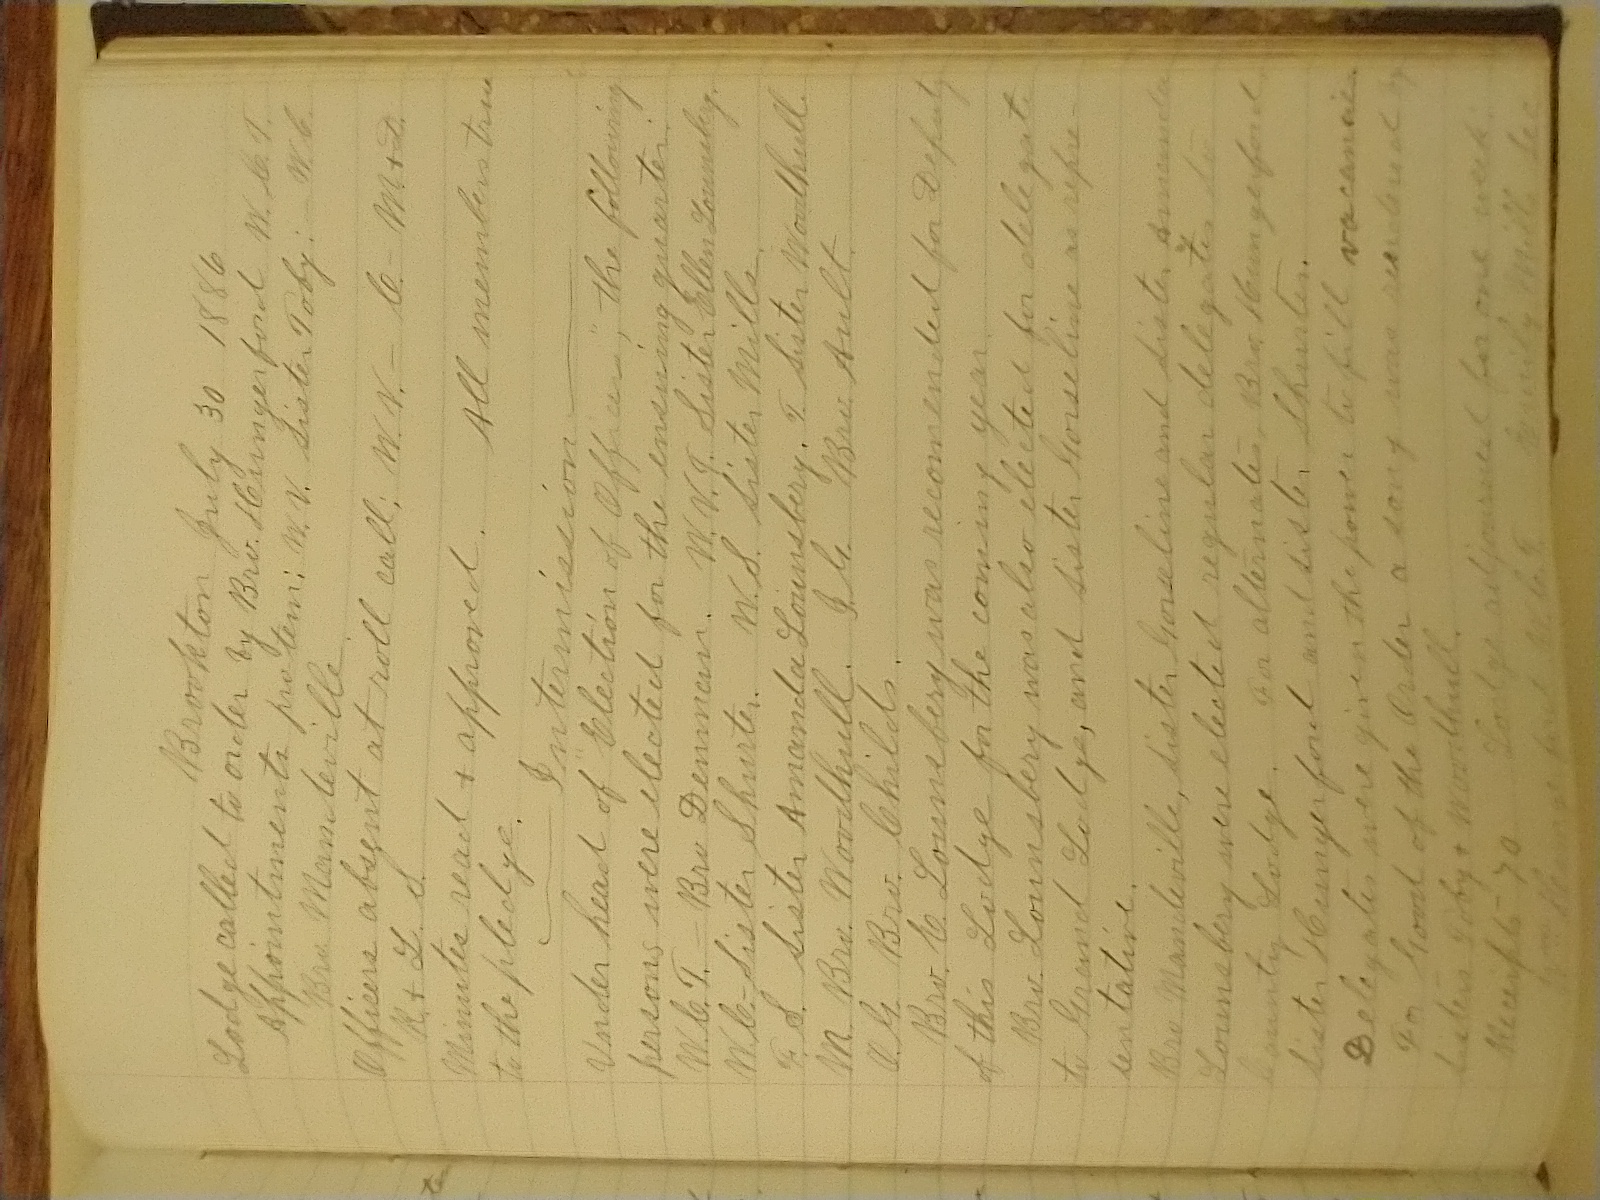 Brookton July 30 1886
Lodge called to order by Bro. Hungerford W.C.T.
Appointments pro tem; W.V. Sister Toby; - W.C.
Bro Mandeville
Officers absent at roll call; W.V. - C - M + D.
R + L. S.
Minutes read + approved. All members true
to the pledge.
Intermission
Under head of "Election of Officers," the following
persons were elected for the ensuing quarter.
W.C.T. - Bro Denman. W.V.T. Sister Ellen Lounsbery.
W.C. - Sister Shurter. W.S. Sister Mills.
F.S. Sister Amanda Lounsbery. T. Sister Woodhull.
M. Bro. Woodhull. I.G. Bro. Ault.
O.G. Bro. Childs.
Bro. C. Lounsbery was recomended for Deputy
of this Lodge for the coming year.
Bro. Lounsbery was also elected for delegate
to Grand Lodge, and Sister Gorseline as repre-
sentative.
Bro Mandeville, Sister Gorseline and Sister Amanda
Lounsbery were elected regular delegates to
County Lodge. For alternates, Bro. Hungerford
Sister Hungerford and Sister Shurter.
Delegates were given the power to fill vacancies.
For Good of the Order a song was rendered by
Sisters Toby + Woodhull.
Receipts - 70 Lodge adjourned for one week.
W.C.T. Emily Mills Sec